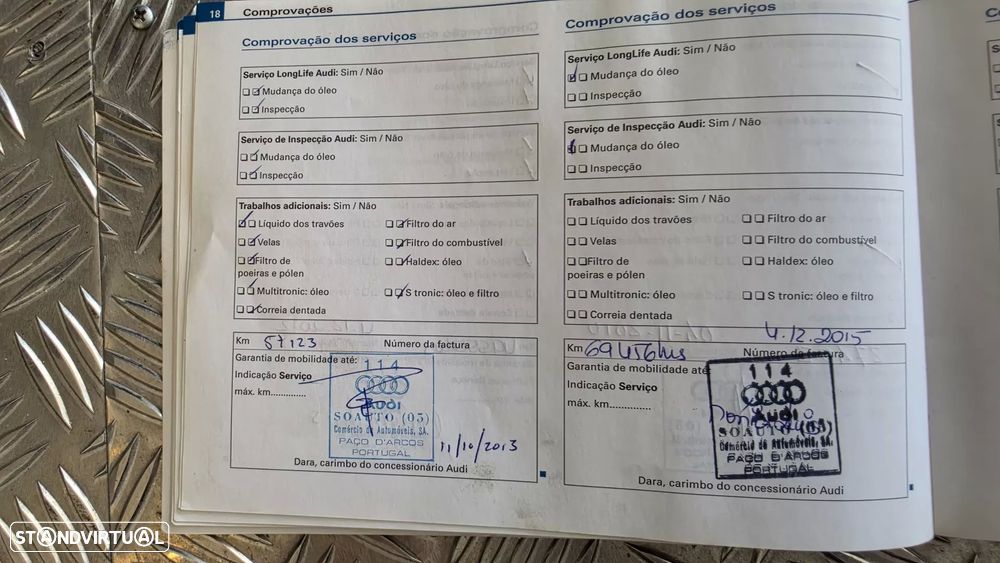 18 Comprovações
Comprovação dos serviços
Serviço LongLife Audi: Sim / Não
Mudança do óleo
Inspecção
Serviço de Inspecção Audi: Sim / Não
Mudança do óleo
Inspecção
Trabalhos adicionais: Sim / Não
Líquido dos travões
Filtro do ar
Velas
Filtro do combustível
Filtro de
poeiras e pólen
Haldex: óleo
Multitronic: óleo
S tronic: óleo e filtro
Correia dentada
Km 57123 Número da factura
Garantia de mobilidade até:
Indicação Serviço
máx. km..............
114
Audi
SOAUTO (05)
Comércio de Automóveis, SA.
PAÇO D'ARCOS
PORTUGAL
11/10/2013
Dara, carimbo do concessionário Audi
Comprovação dos serviços
Serviço LongLife Audi: Sim / Não
Mudança do óleo
Inspecção
Serviço de Inspecção Audi: Sim / Não
Mudança do óleo
Inspecção
Trabalhos adicionais: Sim / Não
Líquido dos travões
Filtro do ar
Velas
Filtro do combustível
Filtro de
poeiras e pólen
Haldex: óleo
Multitronic: óleo
S tronic: óleo e filtro
Correia dentada
4.12.2015
Km 69456 Número da factura
Garantia de mobilidade até:
Indicação Serviço
máx. km..............
114
Audi
SOAUTO (05)
Comércio de Automóveis, SA.
PAÇO D'ARCOS
PORTUGAL
Dara, carimbo do concessionário Audi
STANDVIRTUAL